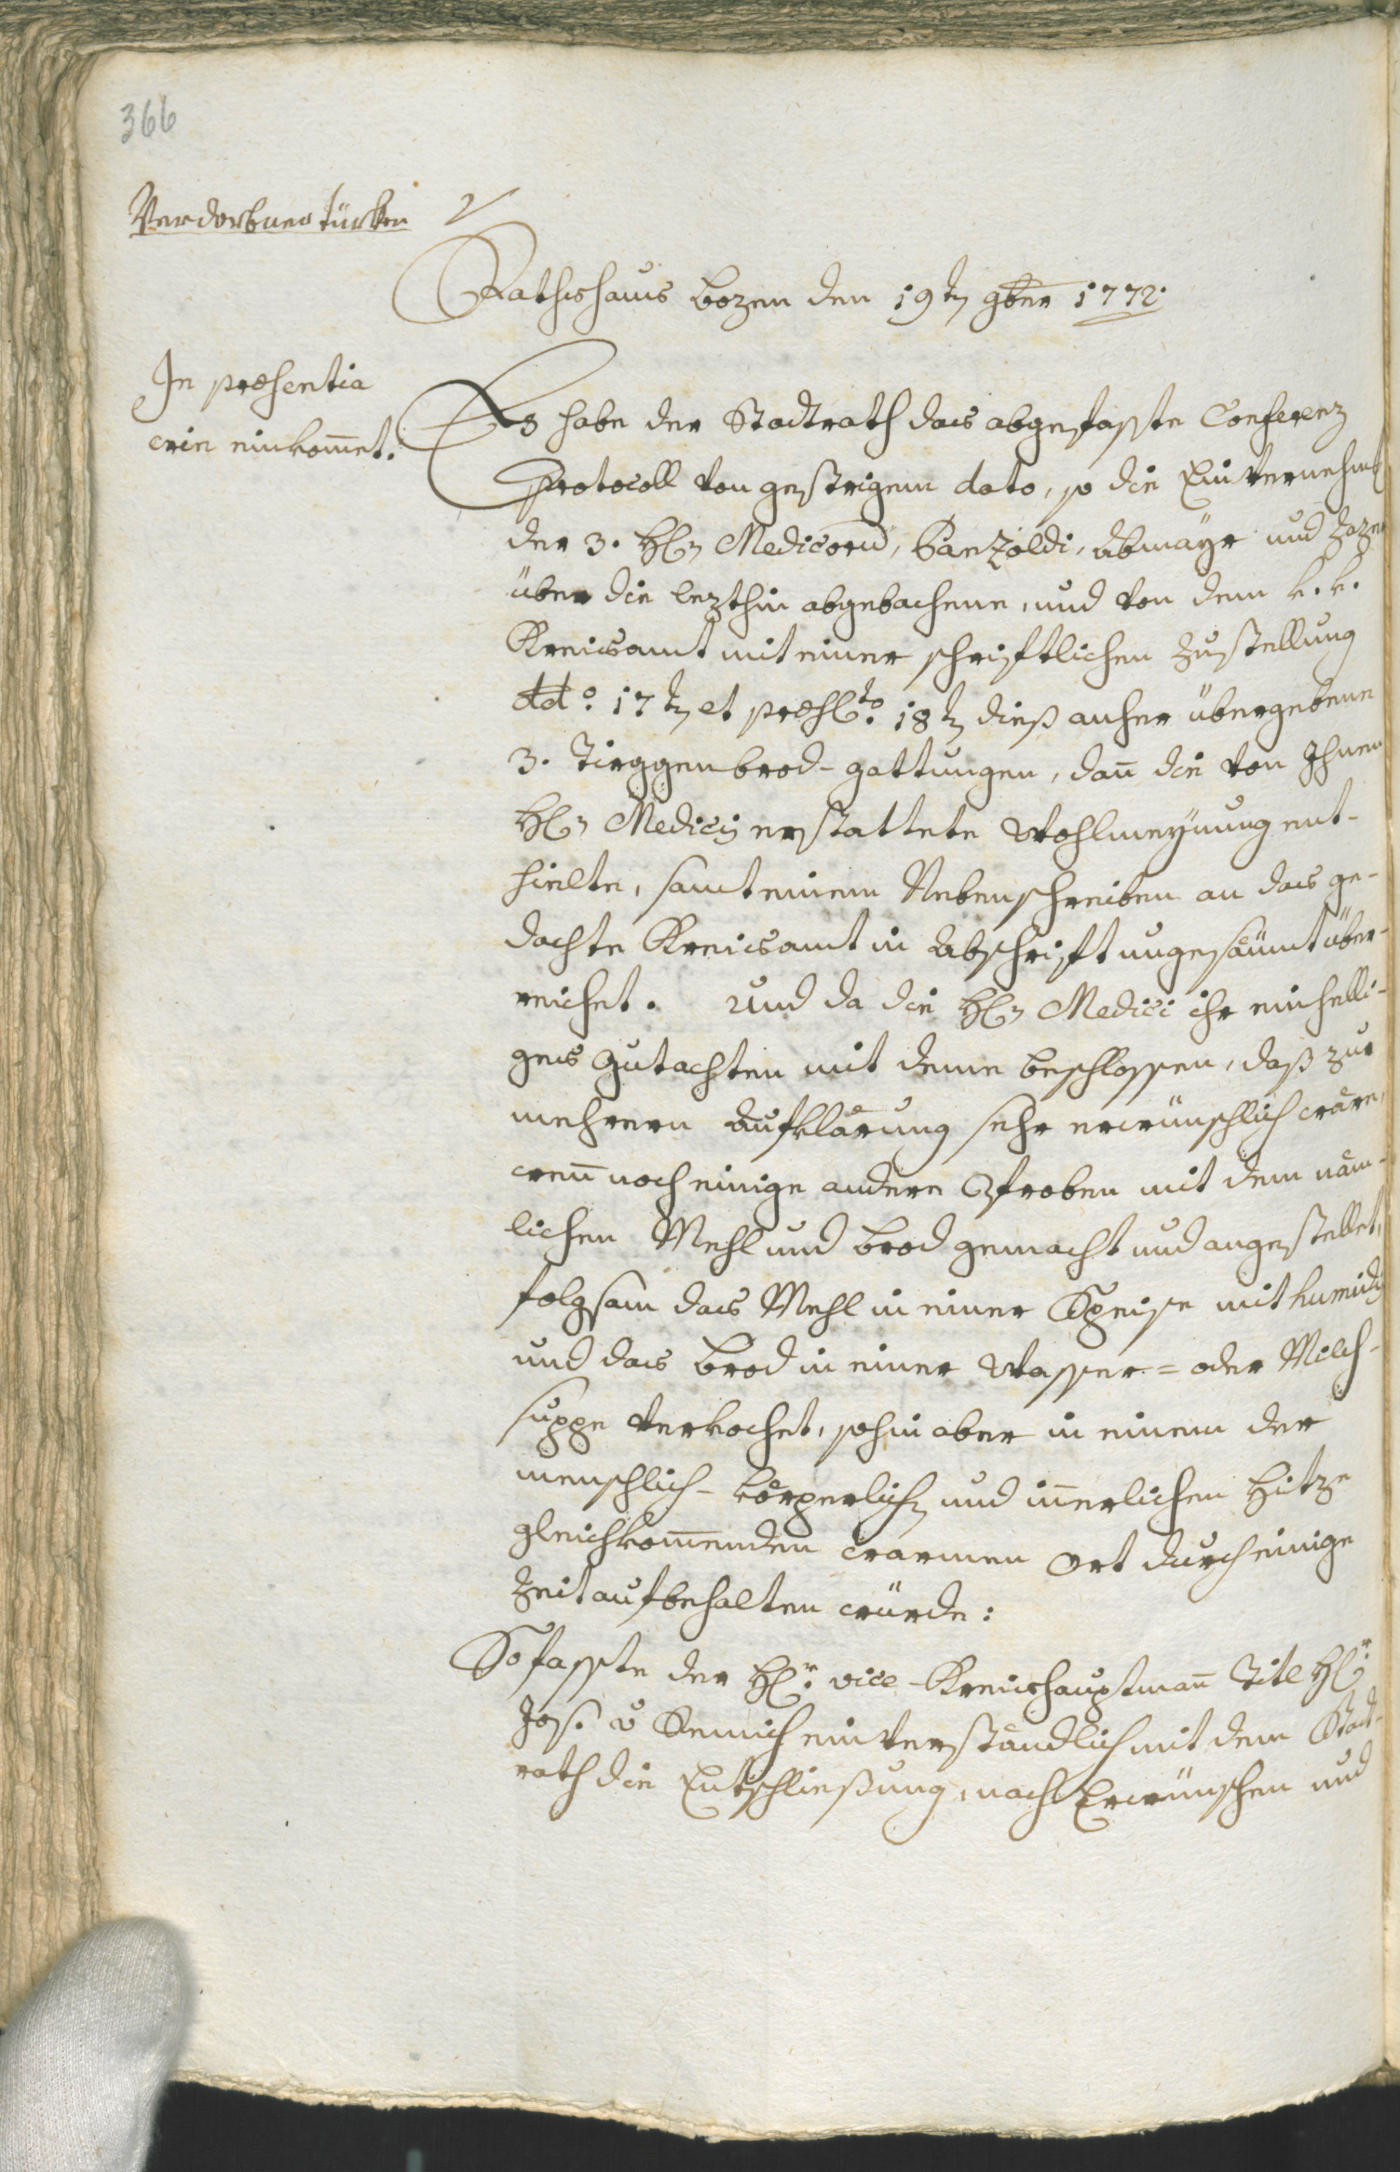 366
Verdorbner türken
Rathshaus Bozen den 19tn 9ber 1772.
In præsentia
wie einkom̄et.
Es habe der Stadtrath das abgefasste Conferenz
Protocoll von gestrigem dato, so die Einvernehmg
der 3. Hhn Medicorū, Panzoldi, Abmayr und
über die lezthin abgebachene, und von dem k. k.
Kreisamt mit einer schriftlichen Zustellung
ddo. 17tn et præslto. 18tn dieß anher übergebene
3. Tirggenbrod-gattungen, dan̄ die von Ihnen
Hhn Medicij erstattete Wohlmeÿnung ent-
hielte, samt einem Nebenschreiben an das ge-
dachte Kreisamt in Abschrift ungesäumt über-
reichet. Und da die Hhn Medici ihr einhelli-
ges Gutachten mit deme beschlossen, daß zur
mehrern Aufklärung sehr erwünschlich wäre,
wen̄ noch einige andere Proben mit dem näm-
lichen Mehl und Brod gemacht und angestellet,
folgsam das Mehl in einer Speise mit humidis
und das Brod in einer Wasser= oder Milch-
suppe verkochet, sohin aber in einem der
menschlich-körperlichn und in̄erlichen Hitze
gleichkom̄enden warmen Ort durch einige
Zeit aufbehalten würde:
So fasste der Hr. vice-Kreishauptman̄ Titl Hr.
Jos. v Remich einverständlich mit dem Stadt-
rath die Entschließung, nach Erwünschen und